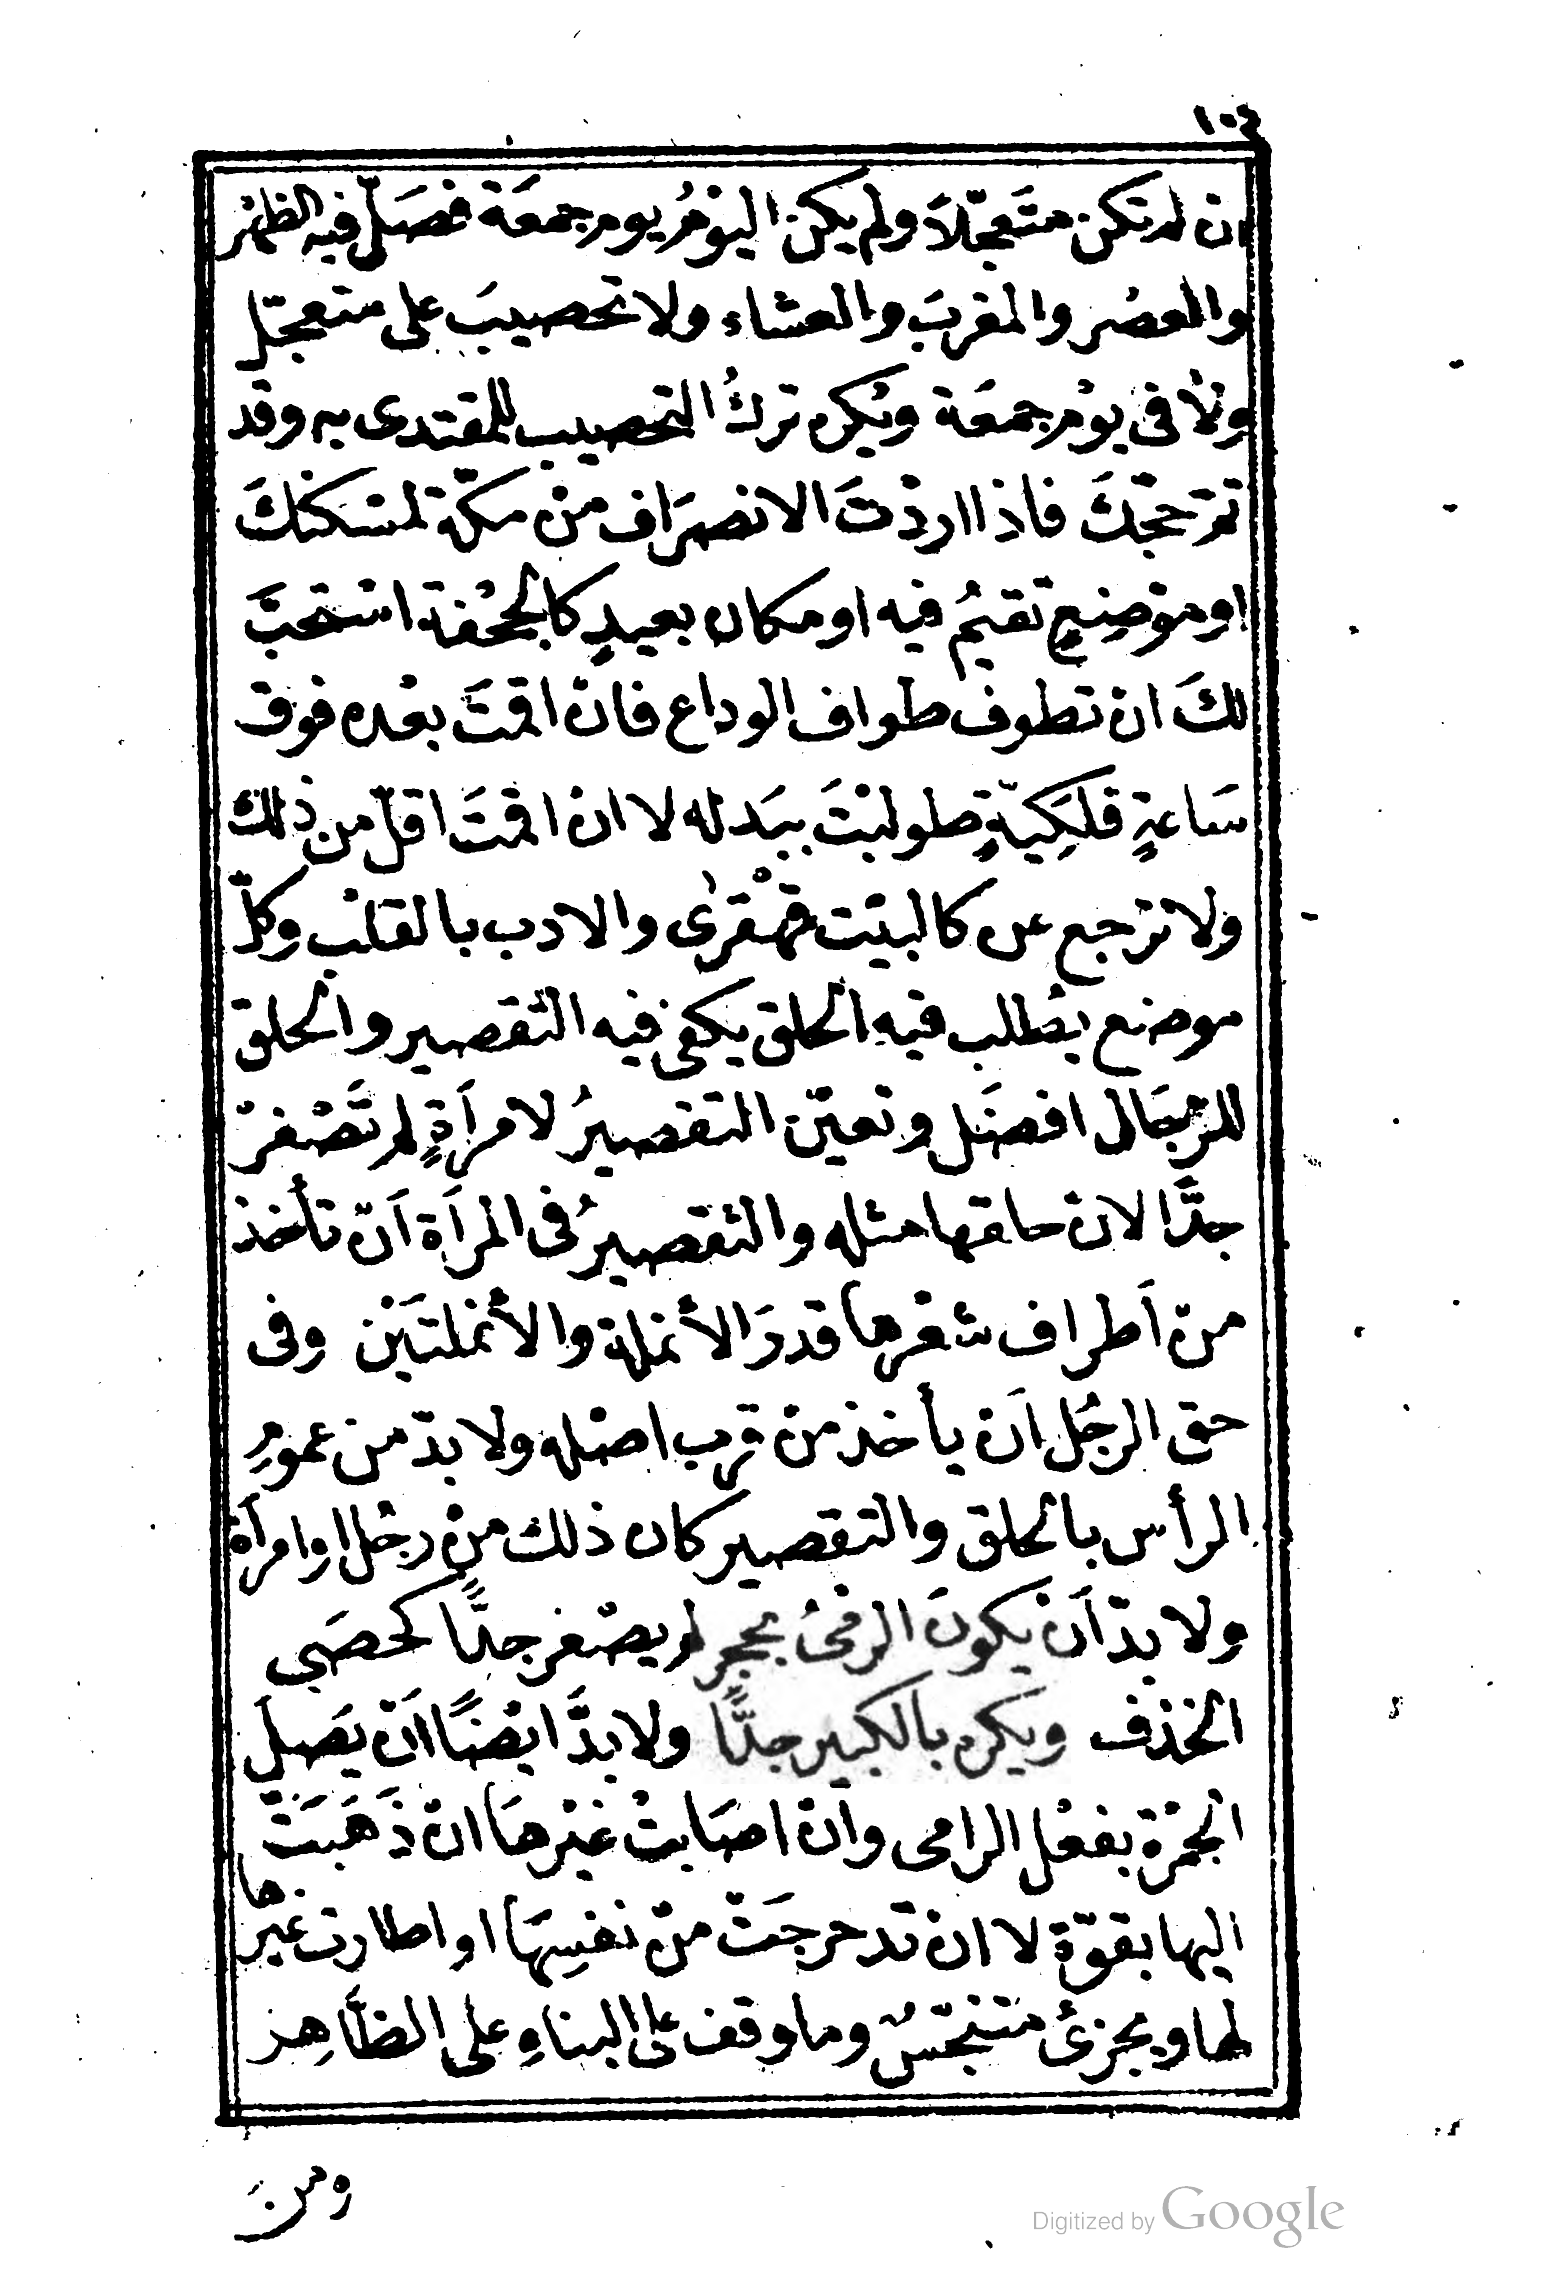 ١٠٤
ان لم تكن متَعجّلاَ ولم يكن اليوْمُ يوم جمعَة فصَلّ فيه الظهْر
والعصْر والمغربَ والعشاء ولا تحصيبَ على متعجّل
ولاَ فى يوْم جمعَة ويُكره تركُ التحصيب للمقتدى به وقد
تمّ حجّكَ فاذا اردْتَ الانصرَاف منْ مكّة لمسْكنكَ
او موْضِعٍ تقيمُ فيه او مكان بعيدٍ كالجحْفة استحبَّ
لكَ ان تطوف طواف الوداع فانْ اقمتَ بعْده فوق
سَاعةٍ فلَكِيّةٍ طولبْتَ ببَدله لا انْ اقمتَ اقلّ من ذلك
ولا ترْجع عن كالبيْت قهْقرٰى والادب بالقلْب وكلّ
موضع يطْلب فيه الحلق يكفى فيه التّقصير والحلق
للرّجَال افضَل وتعيّن التقصيرُ لامرأَةٍ لم تَصْغرْ
جدًّا لانّ حلقها مثله والتّقصيرُ فى المرأَة اَنْ تأخذ
منْ اَطراف شعْرها قدرَ الأنملة والأنملتَيْن وفى
حق الرجُل اَن يأخذ منْ قرب اصْله ولا بدّ من عمومِ
الرأس بالحلق والتقصير كان ذلك منْ رجُل او امرأة
ولا بدّ اَن يكونَ الرمىُ بحجر لم يصْغر جدًّا كحصَى
الخذف ويكره بالكبير جدًّا ولا بدَّ ايْضًا اَنْ يَصل
الجمْرة بفعْل الرامى وانْ اصَابتْ غيْرهَا انْ ذَهَبَتْ
اليها بقوّة لا انْ تدحرجَتْ منْ نفسِهَا او اطارت غيْرها
لها ويجزئ متنجّسٌ وما وقف على البناءِ على الظاهِر
ومن